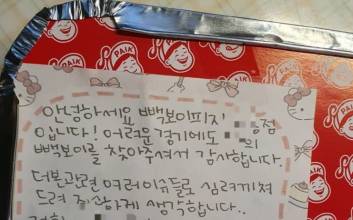 PAIK
안녕하세요 빽보이피자 점
입니다! 어려운 경기에도 의
빽보이를 찾아주셔서 감사합니다
더본관련 여러이슈들로 심려끼쳐
드려 죄송하게 생각합니다..